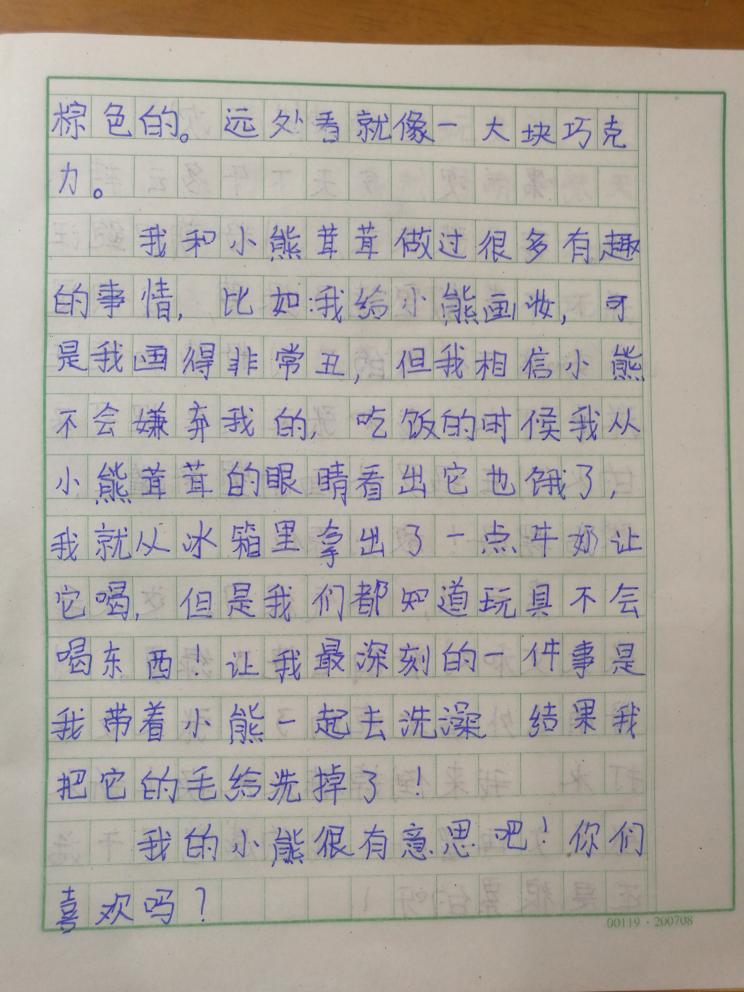 棕色的。远处看就像一大块巧克
力。
我和小熊茸茸做过很多有趣
的事情,比如:我给小熊画妆,可
是我画得非常丑,但我相信小熊
不会嫌弃我的,吃饭的时候我从
小熊茸茸的眼睛看出它也饿了,
我就从冰箱里拿出了一点牛奶让
它喝,但是我们都知道玩具不会
喝东西!让我最深刻的一件事是
我带着小熊一起去洗澡 结果我
把它的毛给洗掉了!
我的小熊很有意思吧!你们
喜欢吗?
00119·200708